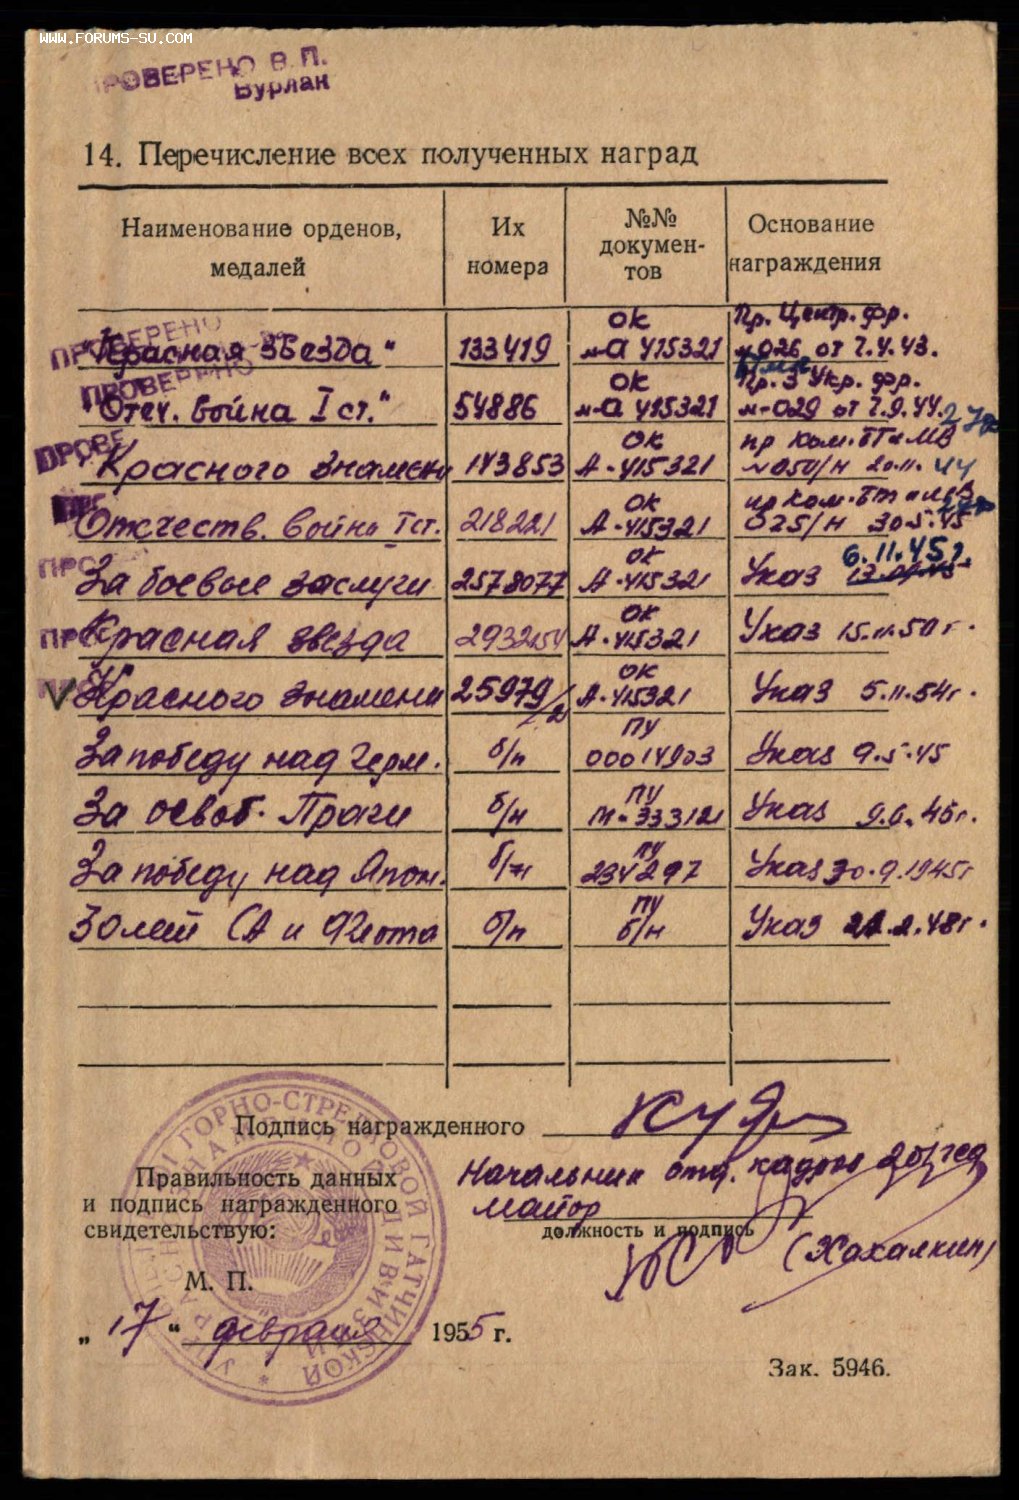 WWW.FORUMS-SU.COM
ПРОВЕРЕНО В. П.
Бурлак
14. Перечисление всех полученных наград
Наименование орденов, медалей
Их номера
№№ документов
Основание награждения
ПРОВЕРЕНО
"Красная звезда" 133419 ОК м-А 415321 Пр. Центр. фр. №026 от 7.4.43.
ПРОВЕРЕНО
"Отеч. война I ст." 54886 ОК м-А 415321 Пр. 3 Укр. фр. м-029 от 7.9.44.
ПРОВЕ
Красного знамени 143853 ОК А-415321 пр ком. БТ и МВ №050/н 20.11. 44
Отечеств. война I ст. 218221 ОК А-415321 пр ком. БТ и МВ 025/н 30.5.45
ПРО
За боевые заслуги 2578077 ОК А-415321 Указ 6.11.45г.
ПРО
Красная звезда 2932154 ОК А-415321 Указ 15.11.50г.
Красного знамени 25979/2 ОК А-415321 Указ 5.11.54г.
За победу над Герм. б/н ПУ 00014903 Указ 9.5.45
За освоб. Праги б/н ПУ м-333121 Указ 9.6.45г.
За победу над Япон. б/н ПУ 234297 Указ 30.9.1945г
30 лет СА и Флота б/н ПУ б/н Указ 22.2.48г.
Подпись награжденного
Правильность данных
и подпись награжденного
свидетельствую:
Начальник отд. кадров
майор
должность и подпись
(Хахалкин)
М. П.
ГОРНО-СТРЕЛКОВОЙ ГАТЧИНСКОЙ
ДИВИЗИИ
„ 17 “ февраля 1955 г.
Зак. 5946.